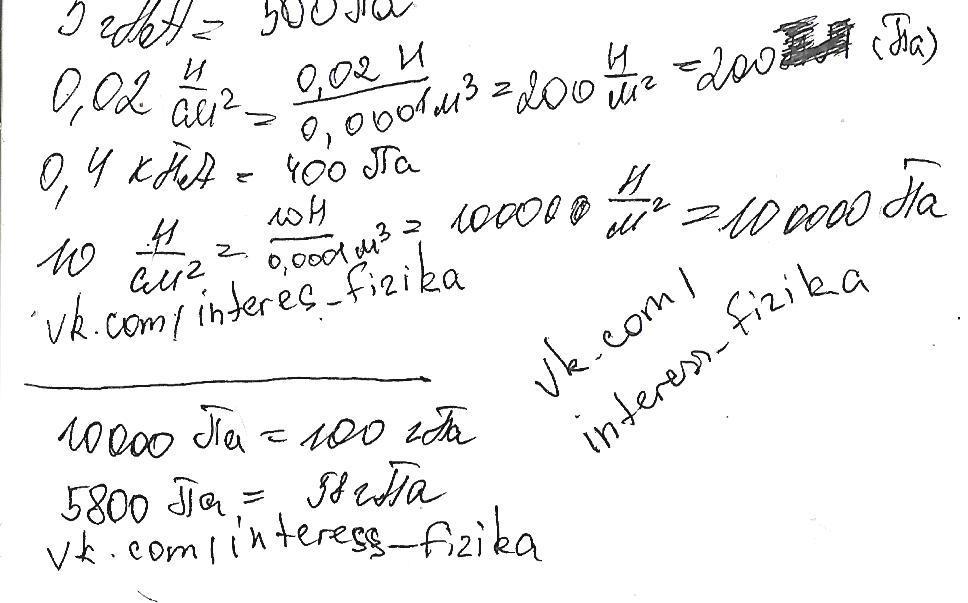 5 гПа = 500 Па
0,02 Н/см² = 0,02 Н/0,0001 м³ = 200 Н/м² = 200 (Па)
0,4 кПа = 400 Па
10 Н/см² = 10Н/0,0001 м³ = 100000 Н/м² = 100000 Па
vk.com/interes_fizika
vk.com/
interess_fizika
10000 Па = 100 гПа
5800 Па = 58 гПа
vk.com/interess_fizika